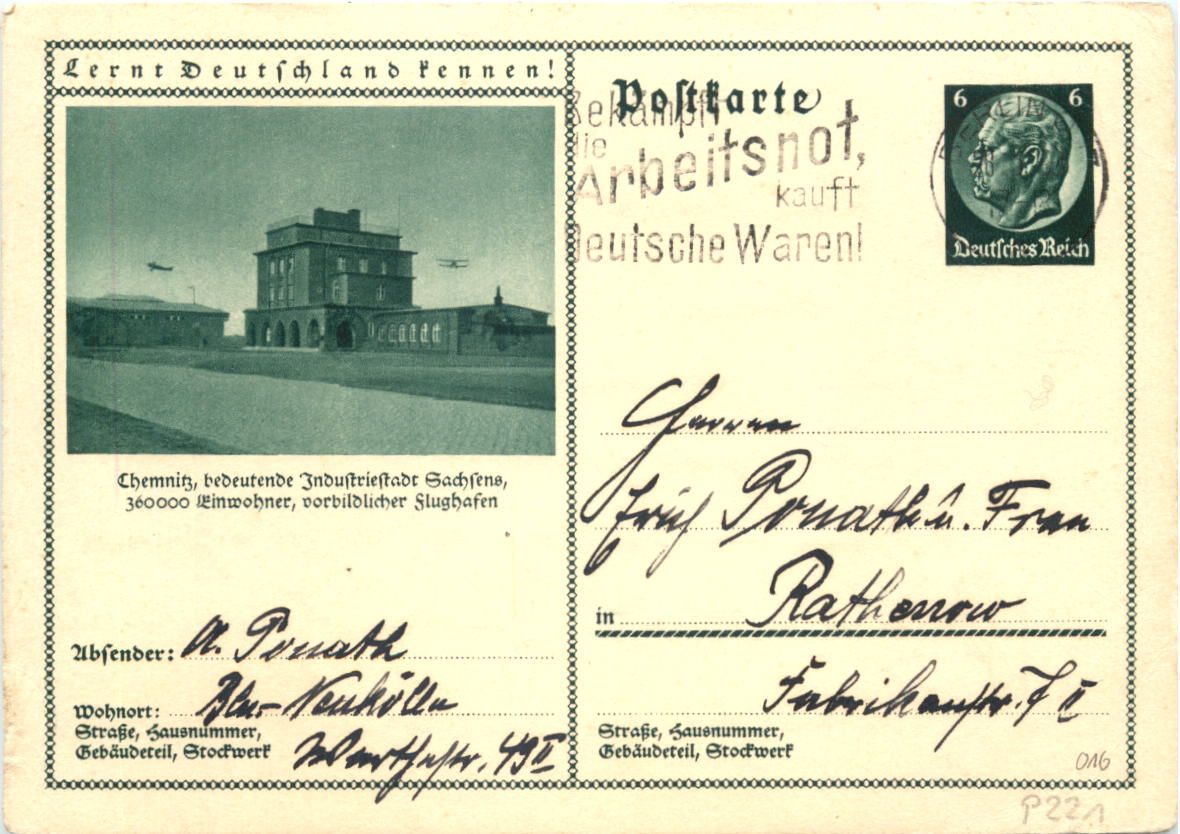 Lernt Deutschland kennen!
Chemnitz, bedeutende Industriestadt Sachsens,
360000 Einwohner, vorbildlicher Flughafen
Absender: A. Ponath
Wohnort: Bln.-Neukölln
Straße, Hausnummer,
Gebäudeteil, Stockwerk
Warthestr. 49 II
Postkarte
Bekämpft
die
Arbeitsnot,
kauft
Deutsche Waren!
6 6
BERLIN
Deutsches Reich
Herrn
Erich Ponath u. Frau
in Rathenow
7 II
Straße, Hausnummer,
Gebäudeteil, Stockwerk
016
P221